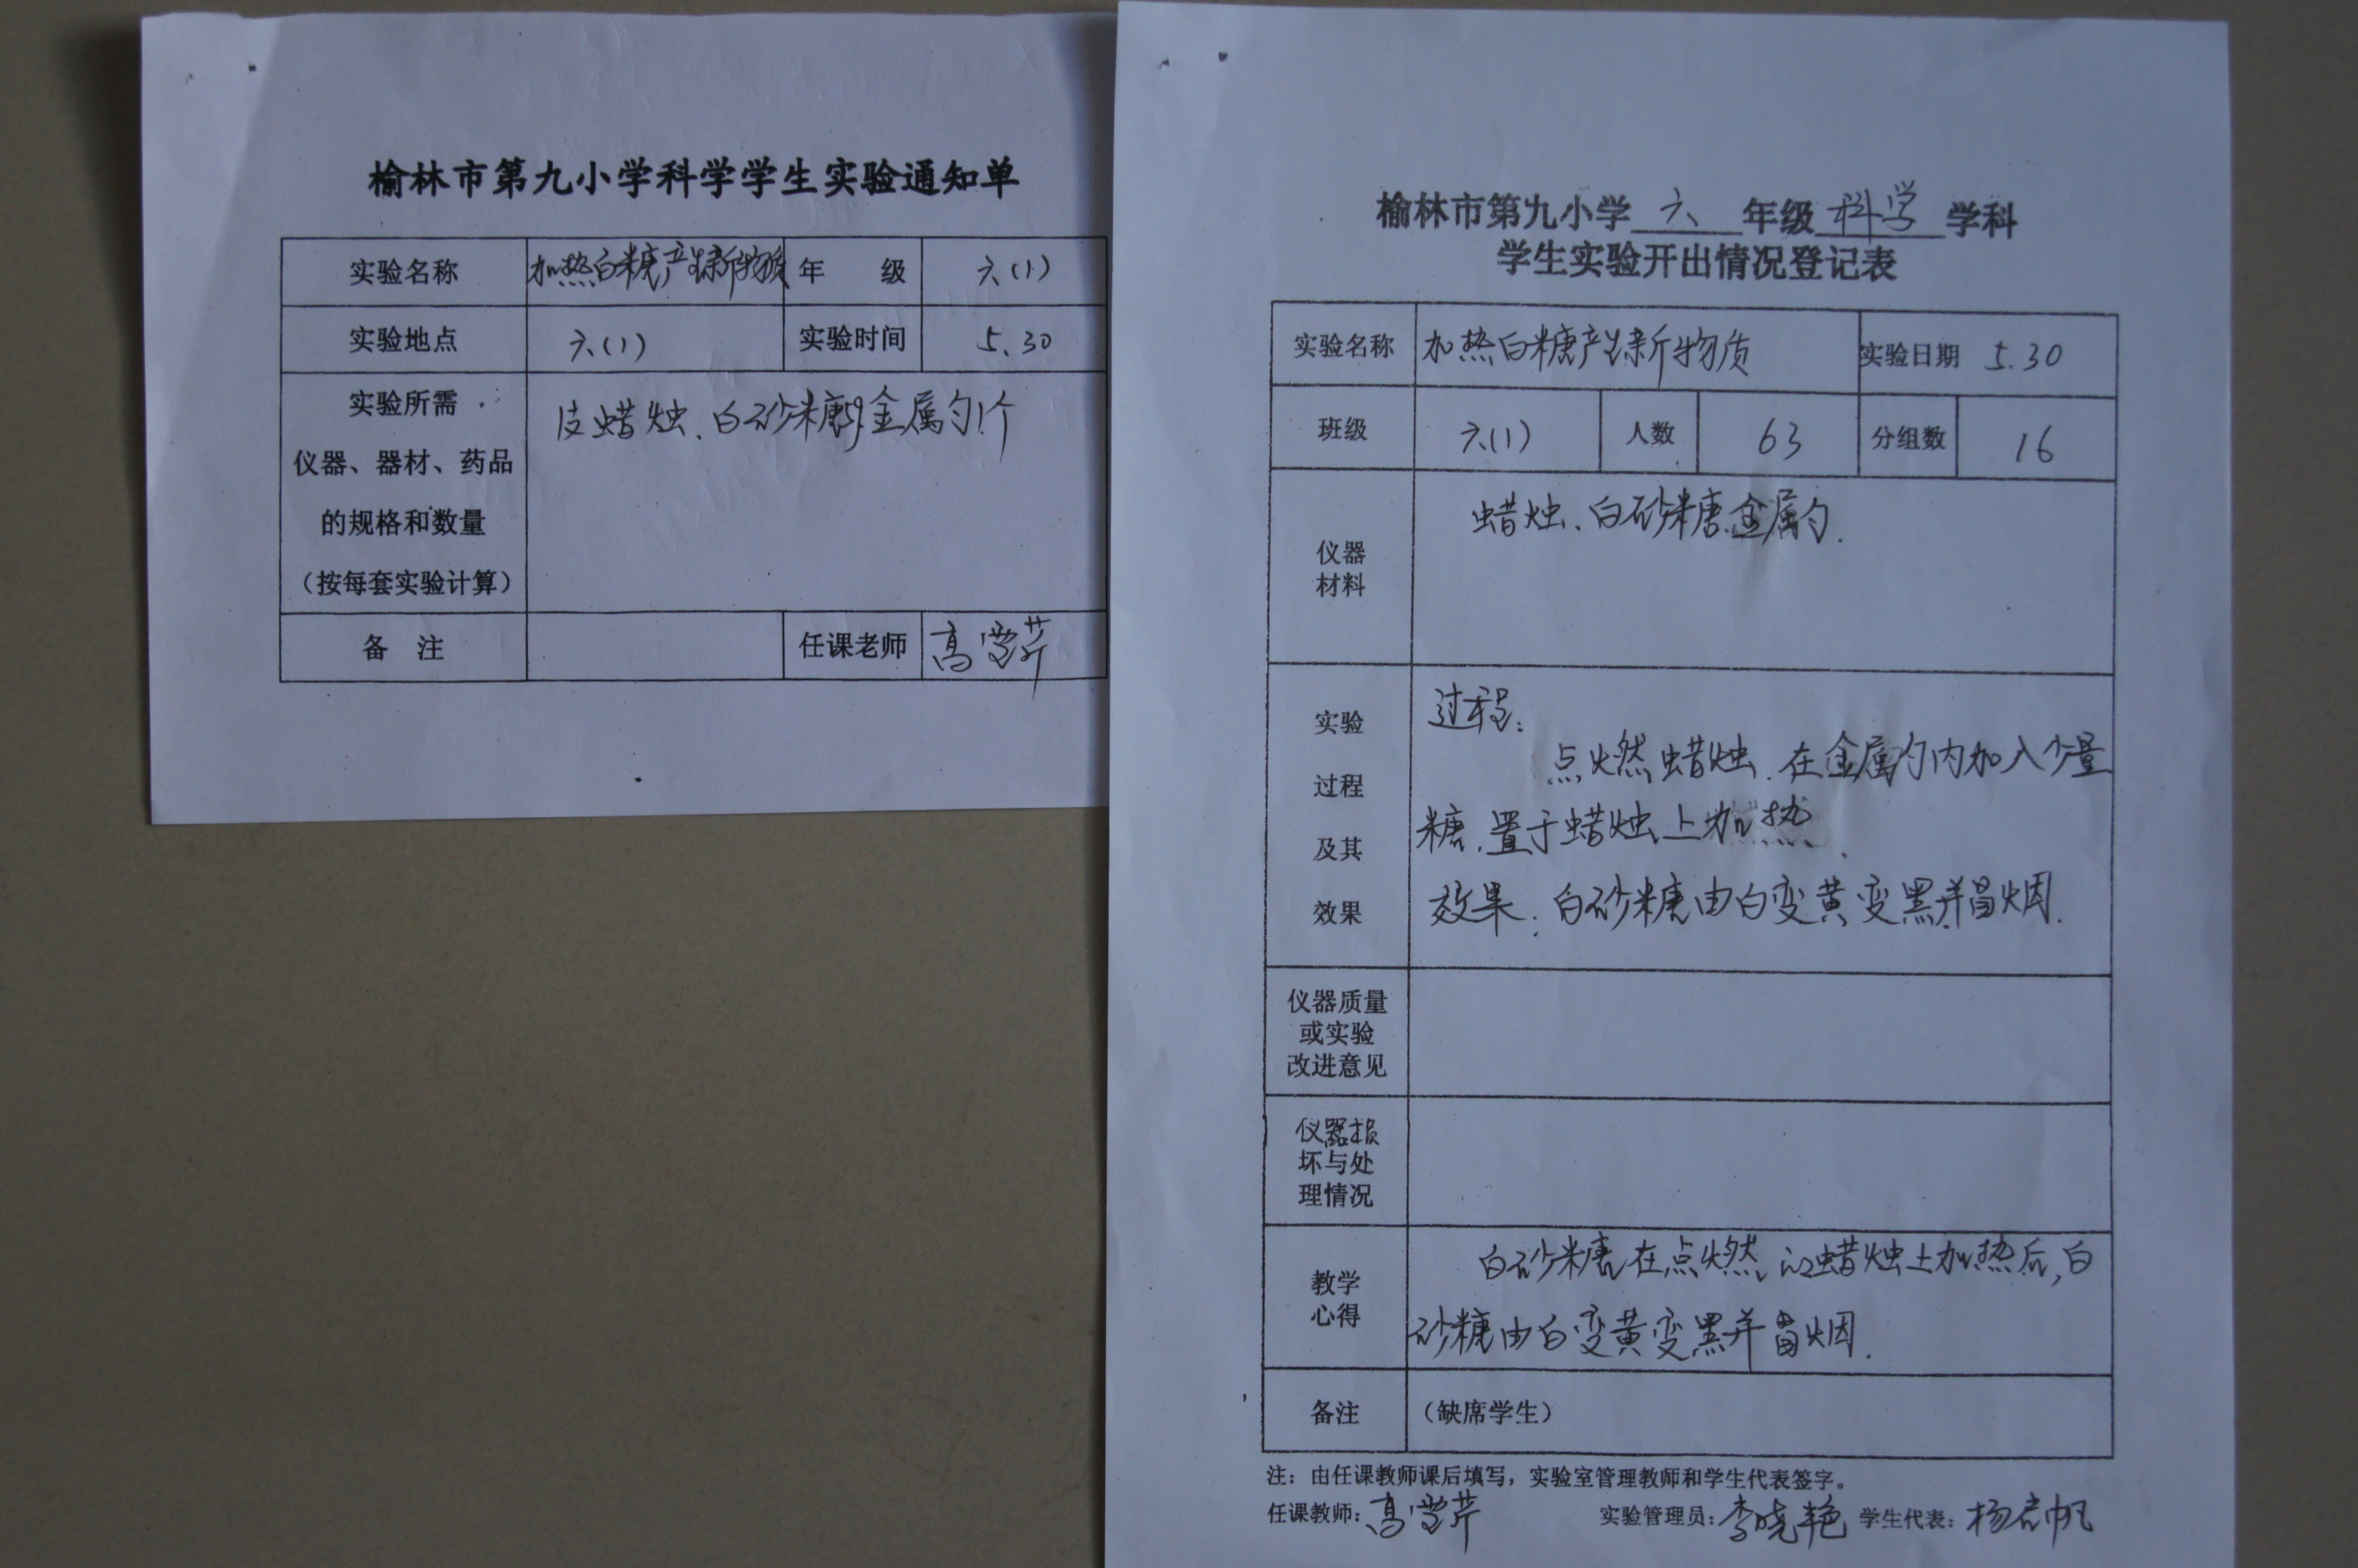 榆林市第九小学科学学生实验通知单
实验名称 加热白糖产生新物质 年 级 六(1)
实验地点 六(1) 实验时间 5.30
实验所需
仪器、器材、药品
的规格和数量
(按每套实验计算)
蜡烛、白砂糖 金属勺1个
备 注 任课老师 高雪芹
榆林市第九小学 六 年级 科学 学科
学生实验开出情况登记表
实验名称 加热白糖产生新物质 实验日期 5.30
班级 六(1) 人数 63 分组数 16
仪器
材料
蜡烛、白砂糖、金属勺.
实验
过程
及其
效果
过程:
点燃蜡烛.在金属勺内加入少量
糖,置于蜡烛上加热.
效果:白砂糖由白变黄变黑并冒烟.
仪器质量
或实验
改进意见
仪器损
坏与处
理情况
教学
心得
白砂糖在点燃的蜡烛上加热后,白
砂糖由白变黄变黑并冒烟.
备注 (缺席学生)
注:由任课教师课后填写,实验室管理教师和学生代表签字。
任课教师:高雪芹 实验管理员:李晓艳 学生代表:杨启帆